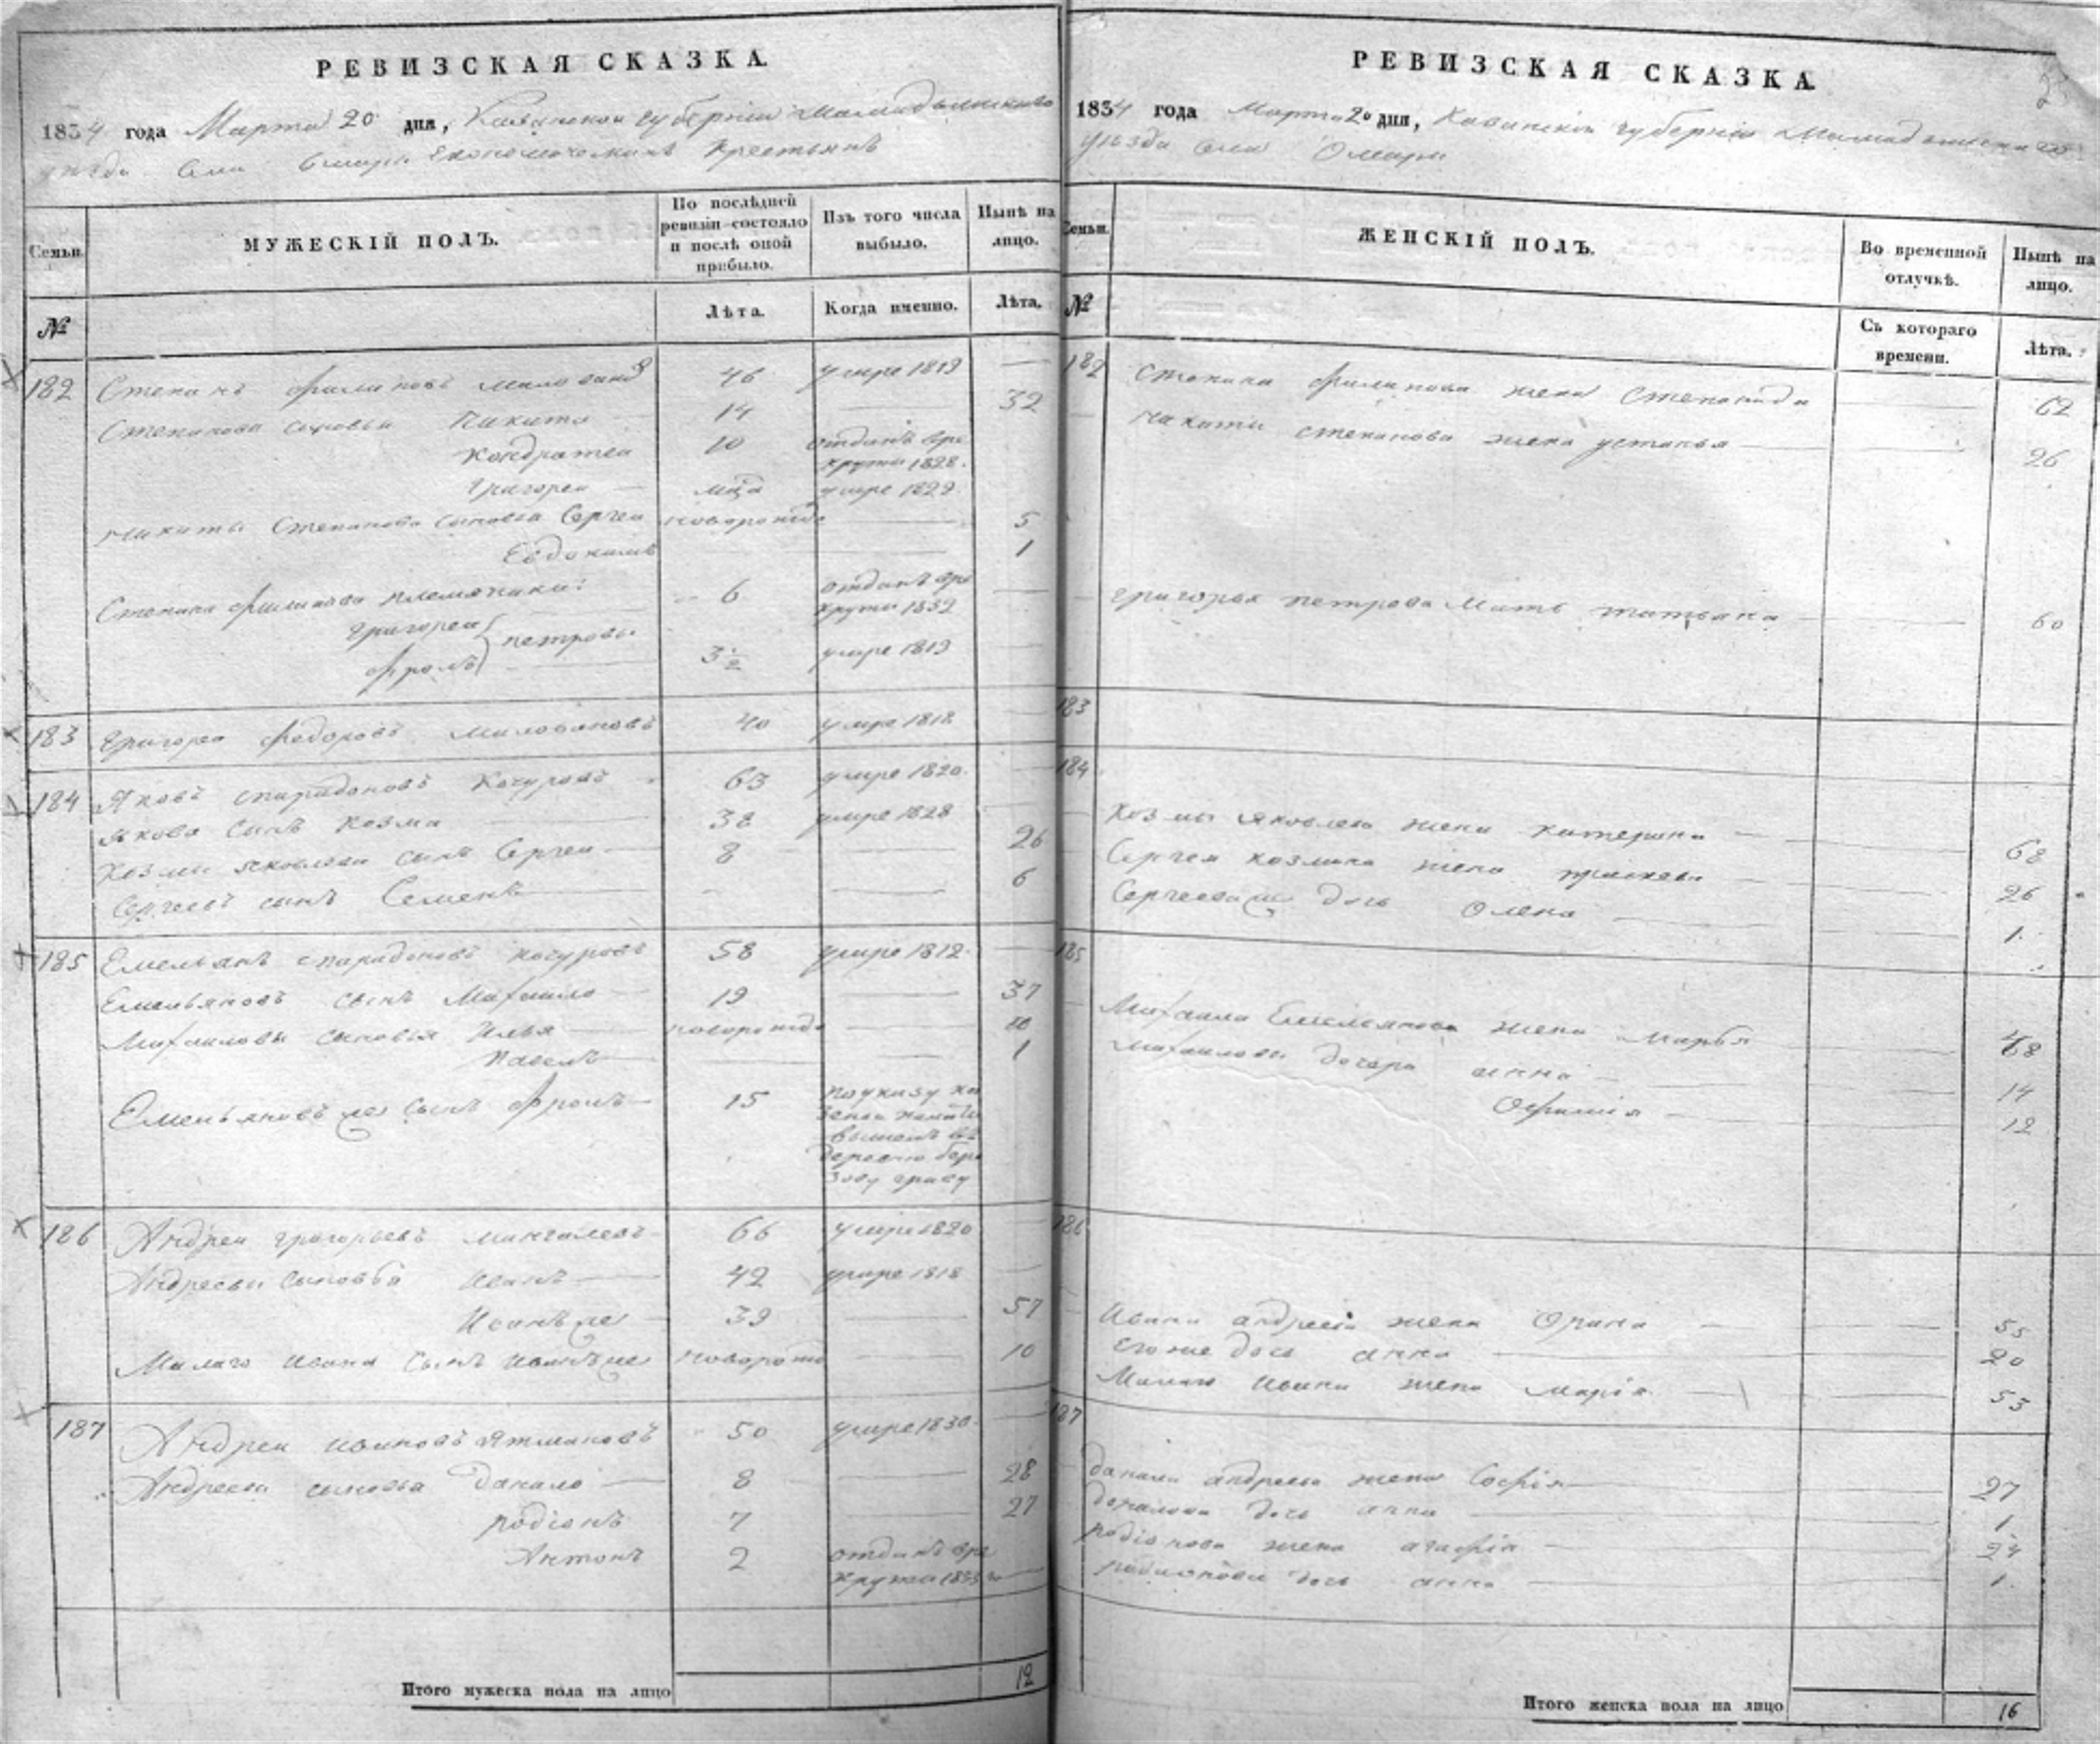 РЕВИЗСКАЯ СКАЗКА.
1834 года Марта 20 дня, Казанской губернии Мамадышскаго
уезда села Омары Экономическихъ крестьянъ
Семьи.
МУЖЕСКІЙ ПОЛЪ.
По послѣдней ревизіи состояло и послѣ оной прибыло.
Изъ того числа выбыло.
Нынѣ на лицо.
№
Лѣта.
Когда именно.
Лѣта.
182 Степанъ Филиповъ Миловановъ 46 умре 1819
Степановы сыновья Никита 14 32
Кондратеи 10 отданъ вре
круты 1828.
Григореи умре 1829.
Никиты Степанова сыновья Сергеи новорожде 5
Евдокимъ 1
Степана Филипова племяники: 6 отданъ вре
круты 1832
Григореи
Фролъ } Петровы 3½ умре 1819
183 Григореи Федоровъ Миловановъ 40 умре 1818
184 Яковъ Спиридоновъ Кочуровъ 63 умре 1820.
Якова сынъ Козма 38 умре 1828
Козмы Яковлева сынъ Сергеи 8 26
Сергеевъ сынъ Семенъ 6
185 Емельянъ Спиридоновъ Кочуровъ 58 умре 1812.
Емельяновъ сынъ Михаило 19 37
Михаиловы сыновья Илья новорожде 10
Павелъ 1
Емельяновъ же сынъ Фролъ 15 по указу ка
зенои палаты
вышелъ въ
деревню бере
зову гриву
186 Андреи Григорьевъ 66 умре 1820
Андреевы сыновья Иванъ 42 умре 1818
Иванъ же 39 57
Малаго Ивана сынъ Иванъ же новорожде 10
187 Андреи Ивановъ Ятмановъ 50 умре 1830.
Андреевы сыновья Данило 8 28
Родіонъ 7 27
Антонъ 2 отданъ вре
круты 1833 го
Итого мужеска пола на лицо 12
РЕВИЗСКАЯ СКАЗКА.
1834 года Марта 20 дня, Казанской губерніи Мамадышскаго
уезда села Омары
Семьи.
ЖЕНСКІЙ ПОЛЪ.
Во временной отлучкѣ.
Нынѣ на лицо.
№
Съ котораго времени.
Лѣта.
182 Степана Филипова жена Степанида 62
Никиты Степанова жена Устинья 26
Григорья Петрова Мать Татьяна 60
183
184
Козмы Яковлева жена Катерина 68
Сергея Козмина жена Прасковья 26
Сергеева же дочь Олена 1.
185
Михаила Емельянова жена Марья 48
Михаиловы дочери Анна 14
Офимія 12
186
Ивана Андреева жена Орина 55
Его же дочь Анна 20
Малаго Ивана жена Марія 53
187
Данилы Андреева жена Софія 27
Данилова дочь Анна 1
Родіонова жена Агафія 24
Родионова дочь Анна 1.
Итого женска пола на лицо 16